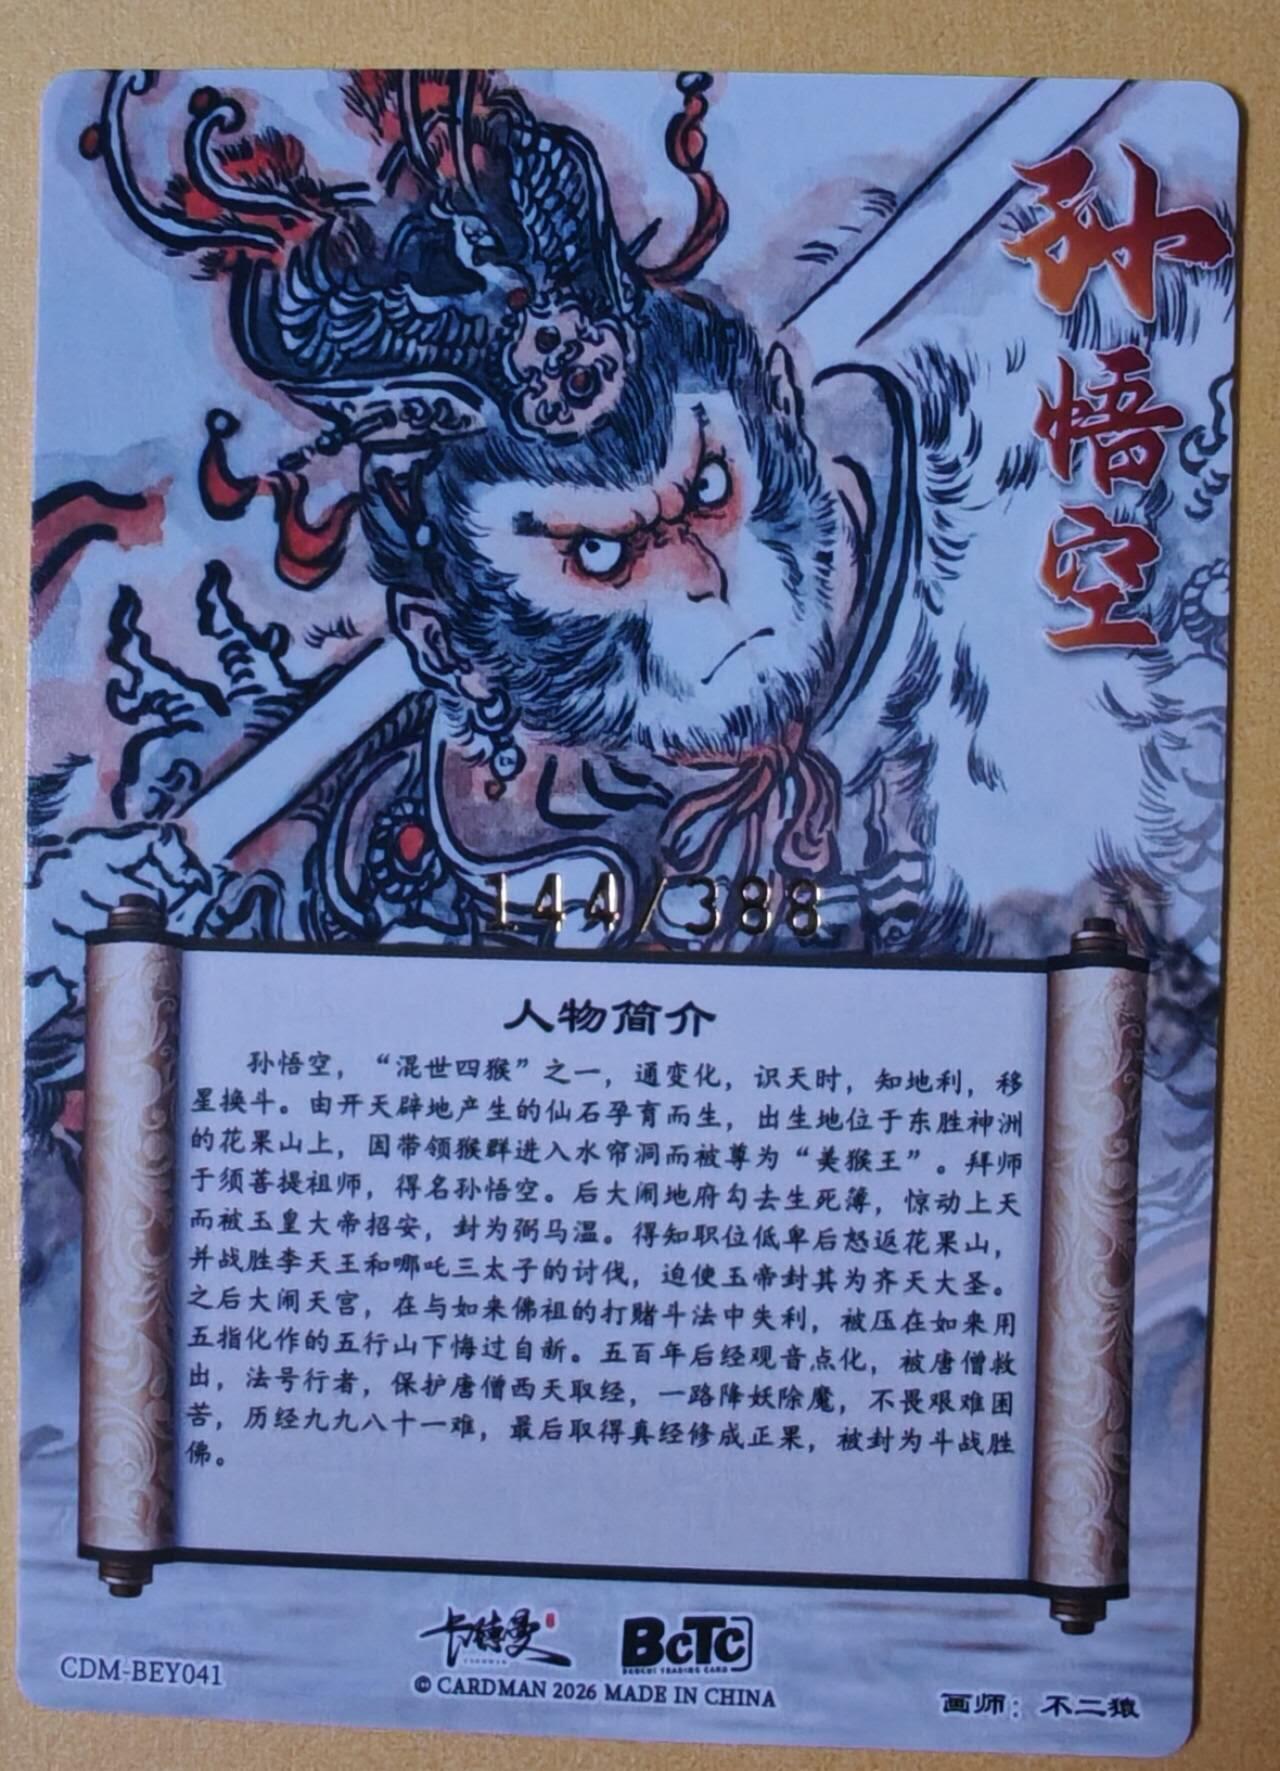 孙悟空
144/388
人物简介
孙悟空，“混世四猴”之一，通变化，识天时，知地利，移
星换斗。由开天辟地产生的仙石孕育而生，出生地位于东胜神洲
的花果山上，因带领猴群进入水帘洞而被尊为“美猴王”。拜师
于须菩提祖师，得名孙悟空。后大闹地府勾去生死簿，惊动上天
而被玉皇大帝招安，封为弼马温。得知职位低卑后怒返花果山，
并战胜李天王和哪吒三太子的讨伐，迫使玉帝封其为齐天大圣。
之后大闹天宫，在与如来佛祖的打赌斗法中失利，被压在如来用
五指化作的五行山下悔过自新。五百年后经观音点化，被唐僧救
出，法号行者，保护唐僧西天取经，一路降妖除魔，不畏艰难困
苦，历经九九八十一难，最后取得真经修成正果，被封为斗战胜
佛。
卡德曼
CARDMAN
BCTC
TRADING CARD
CDM-BEY041
© CARDMAN 2026 MADE IN CHINA
画师：不二猿